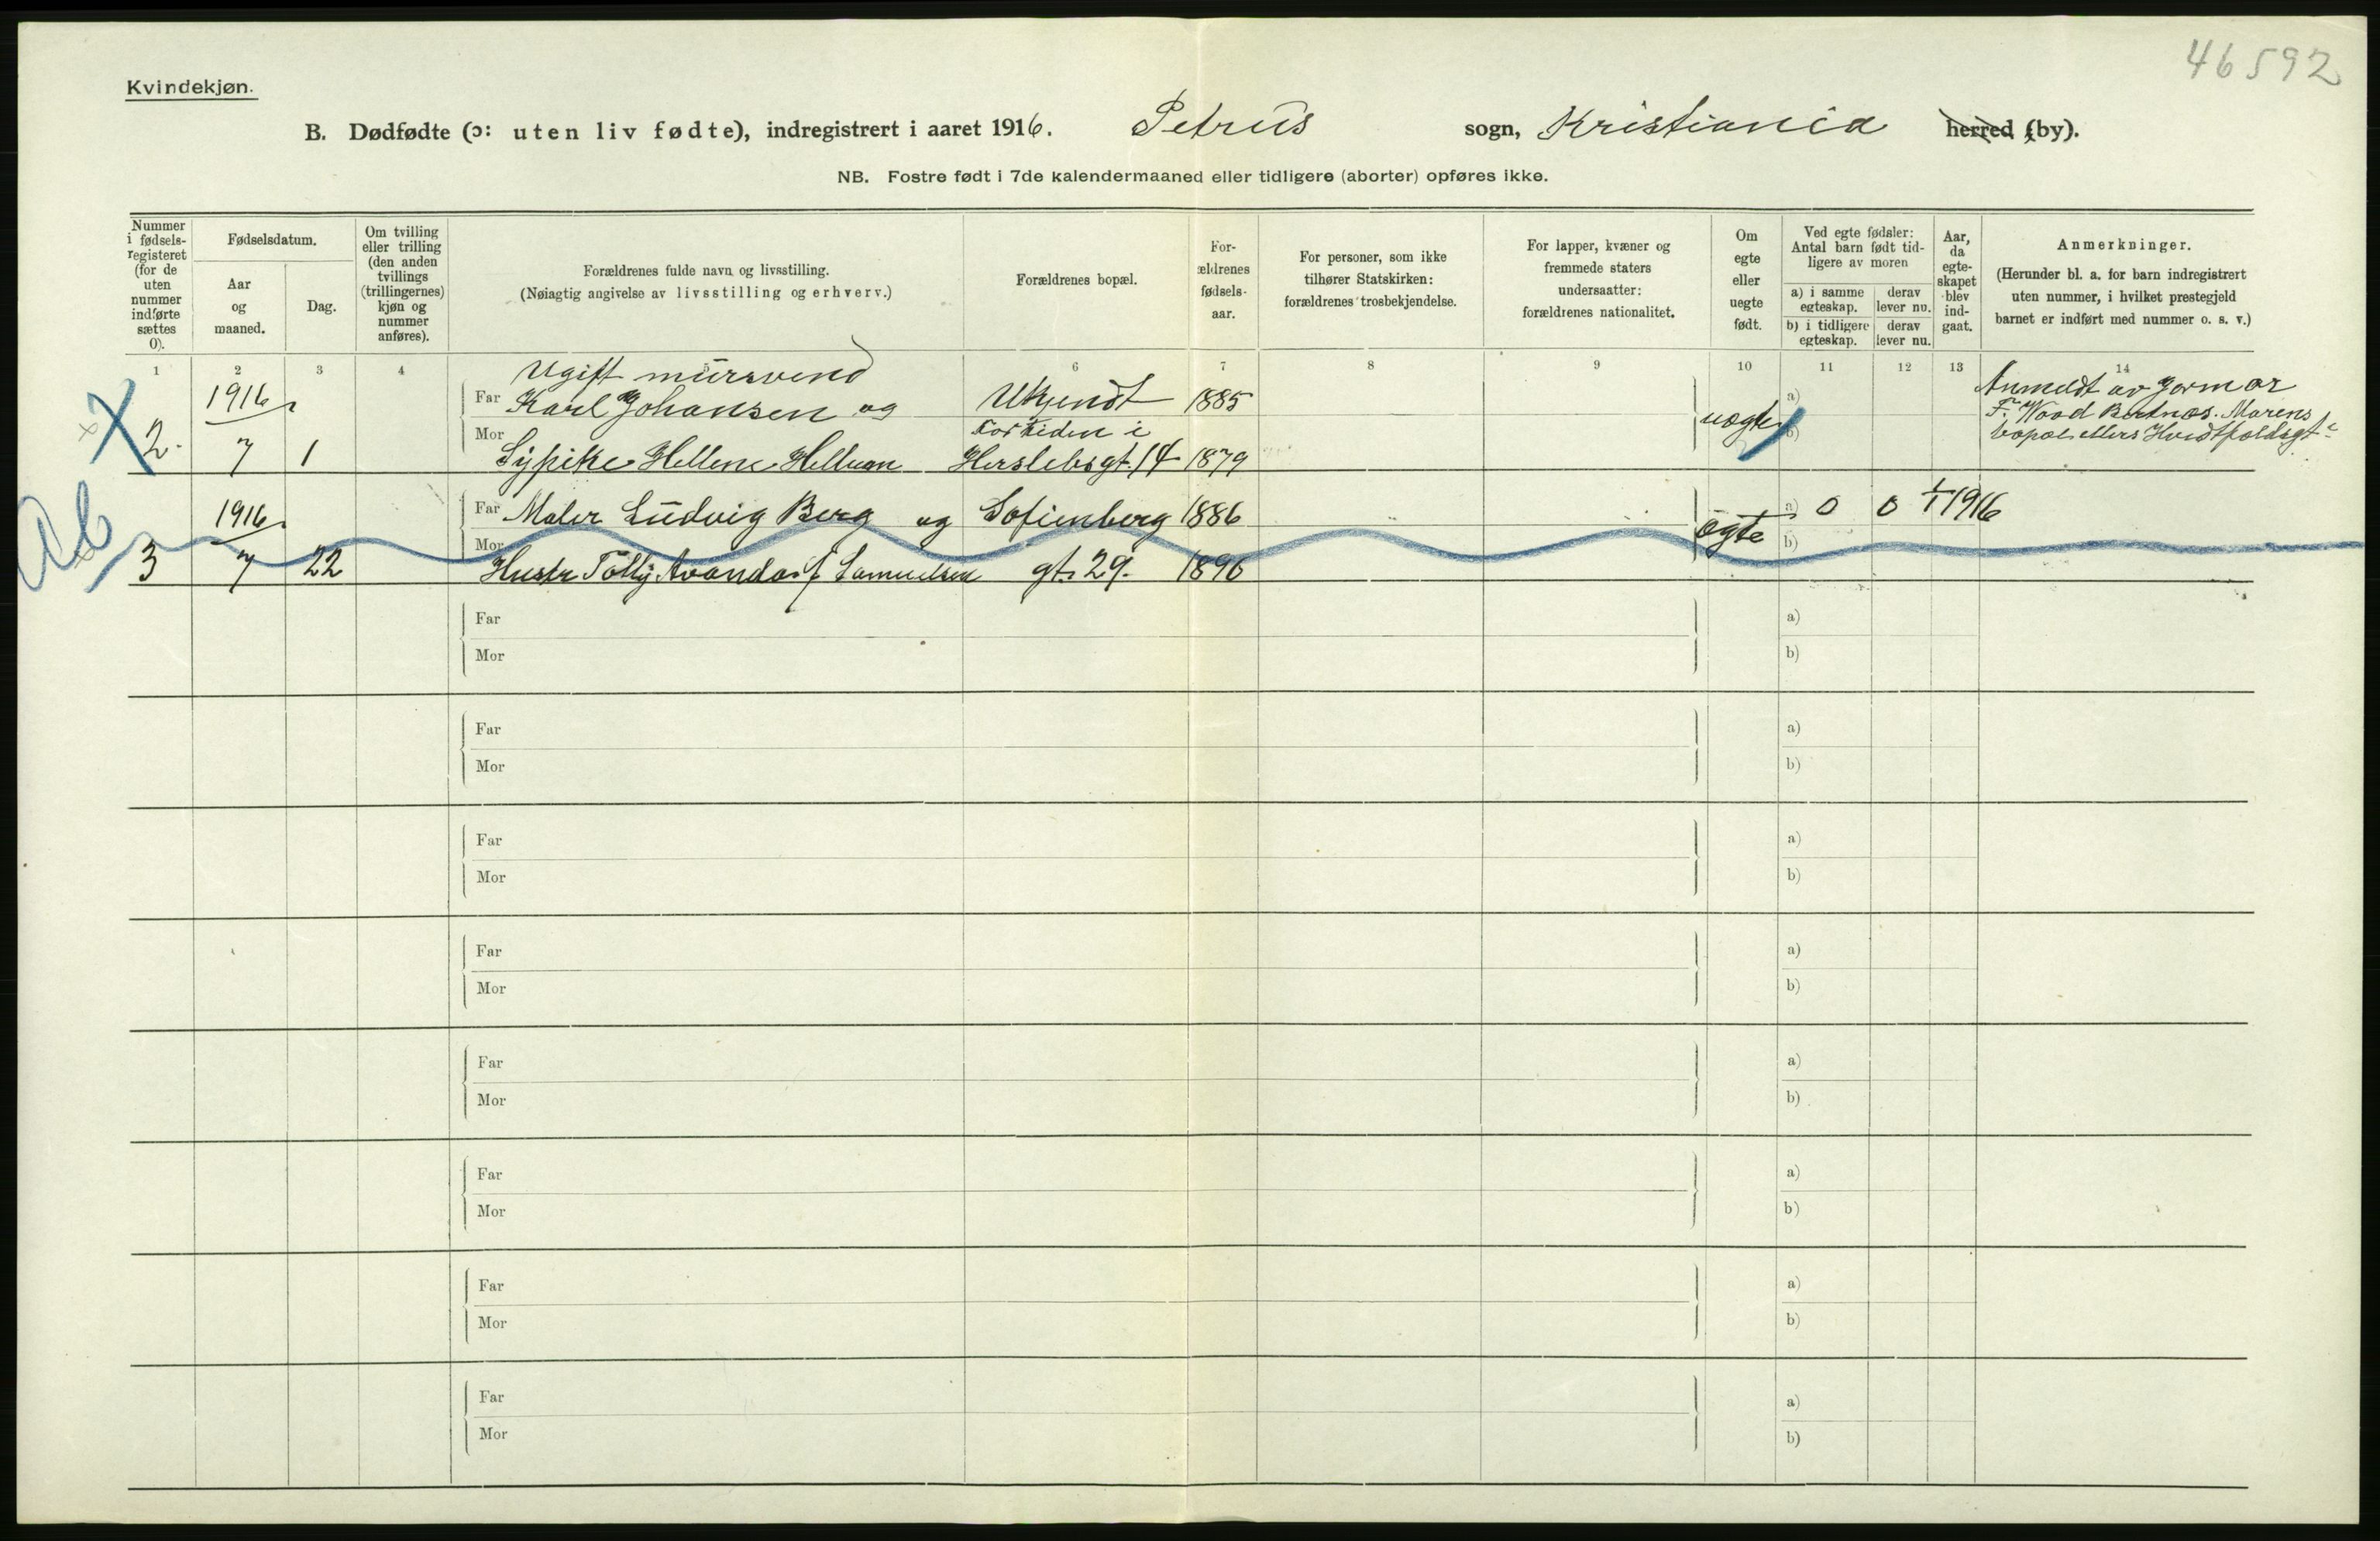 46592
Kvindekjøn.
B. Dødfødte (ɔ: uten liv fødte), indregistrert i aaret 1916. Petrus sogn, Kristiania herred (by).
NB. Fostre født i 7de kalendermaaned eller tidligere (aborter) opføres ikke.
Nummer i fødsels-registeret (for de uten nummer indførte sættes 0).
Fødselsdatum.
Aar og maaned.
Dag.
Om tvilling eller trilling (den anden tvillings (trillingernes) kjøn og nummer anføres).
Forældrenes fulde navn og livsstilling.
(Nøiagtig angivelse av livsstilling og erhverv.)
Forældrenes bopæl.
For-ældrenes fødsels-aar.
For personer, som ikke tilhører Statskirken: forældrenes trosbekjendelse.
For lapper, kvæner og fremmede staters undersaatter: forældrenes nationalitet.
Om egte eller uegte født.
Ved egte fødsler: Antal barn født tid-ligere av moren
a) i samme egteskap. derav lever nu.
b) i tidligere egteskap. derav lever nu.
Aar, da egte-skapet blev ind-gaat.
Anmerkninger.
(Herunder bl. a. for barn indregistrert uten nummer, i hvilket prestegjeld barnet er indført med nummer o. s. v.)
1 2 3 4 6 7 8 9 10 11 12 13 14
Ugift mursvend
1916 Far Karl Johansen og Ukjendt 1885 uegte a) Anmeldt av Jormor
F. Wood
Mor For tiden i b) bopæl ellers
2. 7 1 Sypike Hellene Herslebsgt. 14 1879
Ab
1916. Far Maler Ludvig Berg og Sofienberg 1886 egte a) 0 0 1916
Mor b)
3 7 22 Hustr Samuelsen gt. 29. 1896
Far a)
Mor b)
Far a)
Mor b)
Far a)
Mor b)
Far a)
Mor b)
Far a)
Mor b)
Far a)
Mor b)
Far a)
Mor b)
Far a)
Mor b)